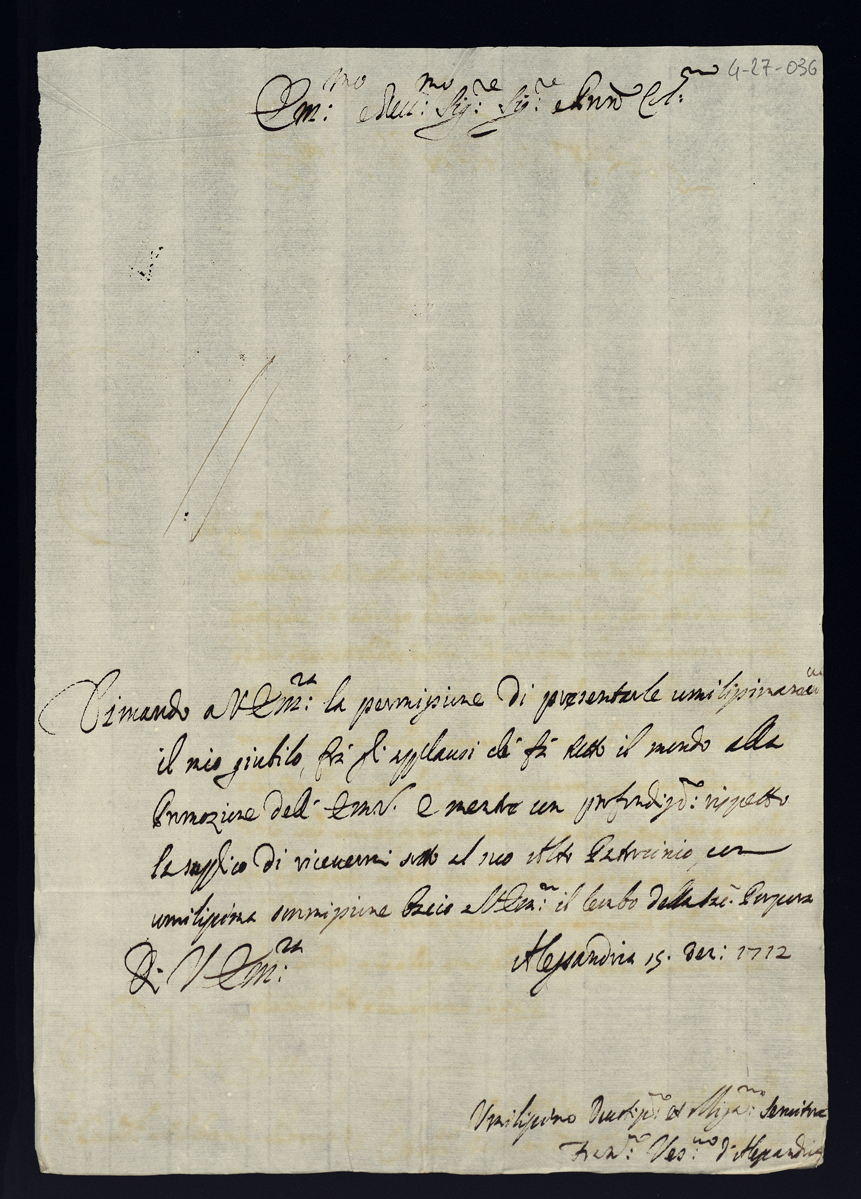 4-27-036
Em:mo e Reu:mo Sig:re Sig:re e Prñe Col:mo
Dimando a V Em:za la permissione di presentarle umilissimamen
il mio giubilo, frà gl'applausi che fà tutto il mondo alla
Promozione dell' Em.V. E mentre con profondiss:o rispetto
la supplico di riceuermi sotto al suo Alto Patrocinio, con
umilissima sommissione bacio a V Em:za il lembo della Sac. Porpora
Di V Em:za
Alessandria 15. : 1712
Umilissimo Deuotiss:o et Oblig:mo Seruitore
Fran:co Ves:uo d'Alessandria